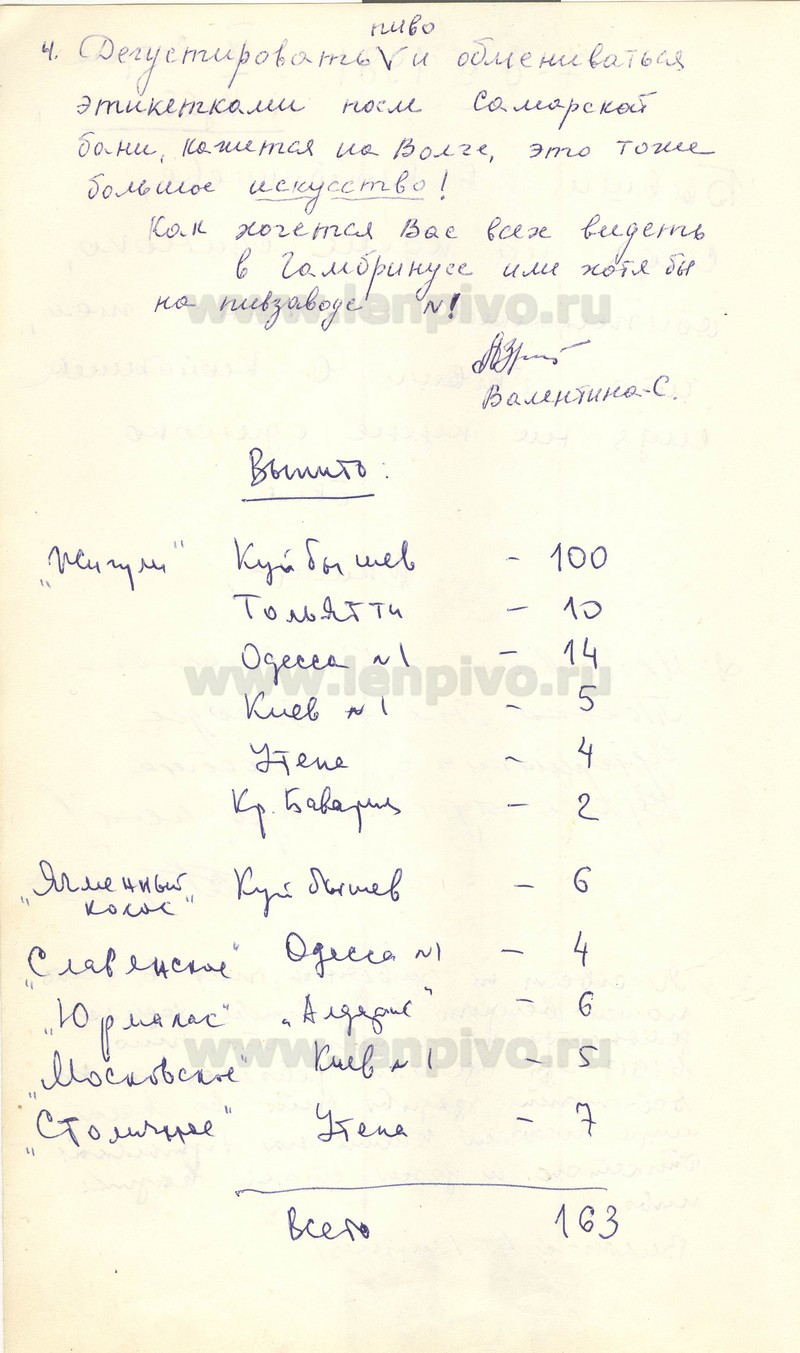 пиво
4. Дегустировать V и обмениваться
этикетками после Самарской
бани, кажется на Волге, это тоже
большое искусство!
Как хочется Вас всех видеть
в Гамбринусе или хотя бы
на пивзаводе №1
www.lenpivo.ru
Валентина С.
Выпито:
"Жигули" Куйбышев - 100
Тольятти - 10
Одесса №1 - 14
www.lenpivo.ru
Киев №1 - 5
Утена - 4
Кр. Бавария - 2
"Ячменный колос" Куйбышев - 6
"Славянское" Одесса №1 - 4
"Юрмалас" "Алдарис" - 6
"Московское" Киев №1 - 5
www.lenpivo.ru
"Столичное" Утена - 7
Всего 163